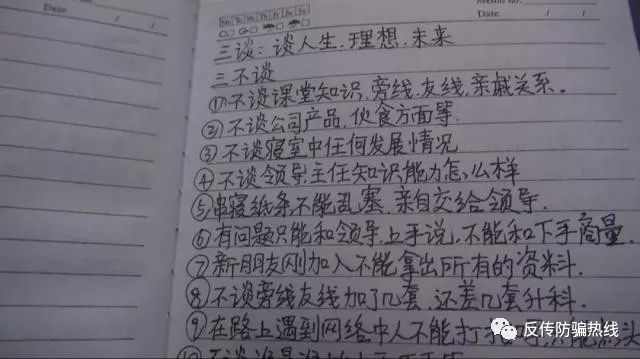 Memo no.
Mo Tu We Th Fr Sa Su
Date / /
Date / /
三谈：谈人生.理想.未来
三不谈
①不谈课堂知识,旁线,友线,亲戚关系。
②不谈公司产品,伙食方面等.
③不谈寝室中任何发展情况
④不谈领导.主任知识能力怎么样
⑤串寝纸条不能乱塞.亲自交给领导.
⑥有问题只能和领导.上手说,不能和下手商量.
⑦新朋友刚加入不能拿出所有的资料.
⑧不谈旁线友线加了几套,还差几套升科.
⑨在路上遇到网络中人不能打
⑩不谈
反传防骗热线